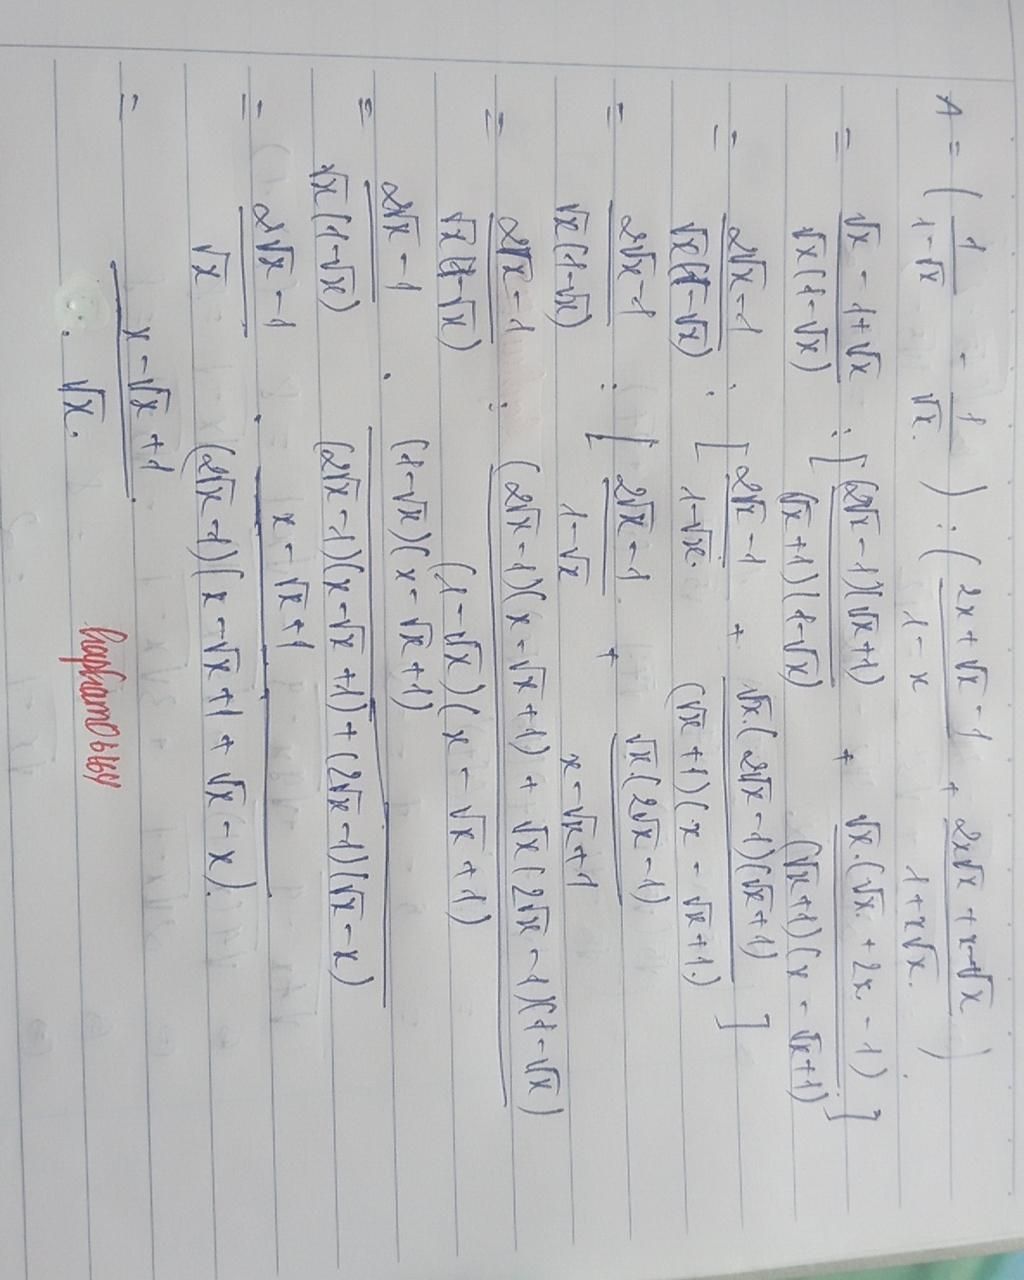 A = ( 1/(1-√x) - 1/√x. ) : ( (2x+√x-1)/(1-x) + (2x√x+x-√x)/(1+x√x.) )
= (√x-1+√x)/(√x(1-√x)) : [ (2√x-1)(√x+1)/((√x+1)(1-√x)) + √x.(√x.+2x-1)/((√x+1)(x-√x+1)) ]
= (2√x-1)/(√x(1-√x)) : [ (2√x-1)/(1-√x.) + √x.(2√x-1)(√x+1)/((√x+1)(x-√x+1.)) ]
= (2√x-1)/(√x(1-√x)) : [ (2√x-1)/(1-√x) + √x.(2√x-1)/(x-√x+1)
= (2√x-1)/(√x(1-√x)) : ((2√x-1)(x-√x+1)+√x(2√x-1)(1-√x))/((1-√x)(x-√x+1))
= (2√x-1)/(√x(1-√x)) . (1-√x)(x-√x+1)/((2√x-1)(x-√x+1)+(2√x-1)(√x-x))
= (2√x-1)/√x . (x-√x+1)/((2√x-1)(x-√x+1+√x-x).)
= (x-√x+1)/√x.